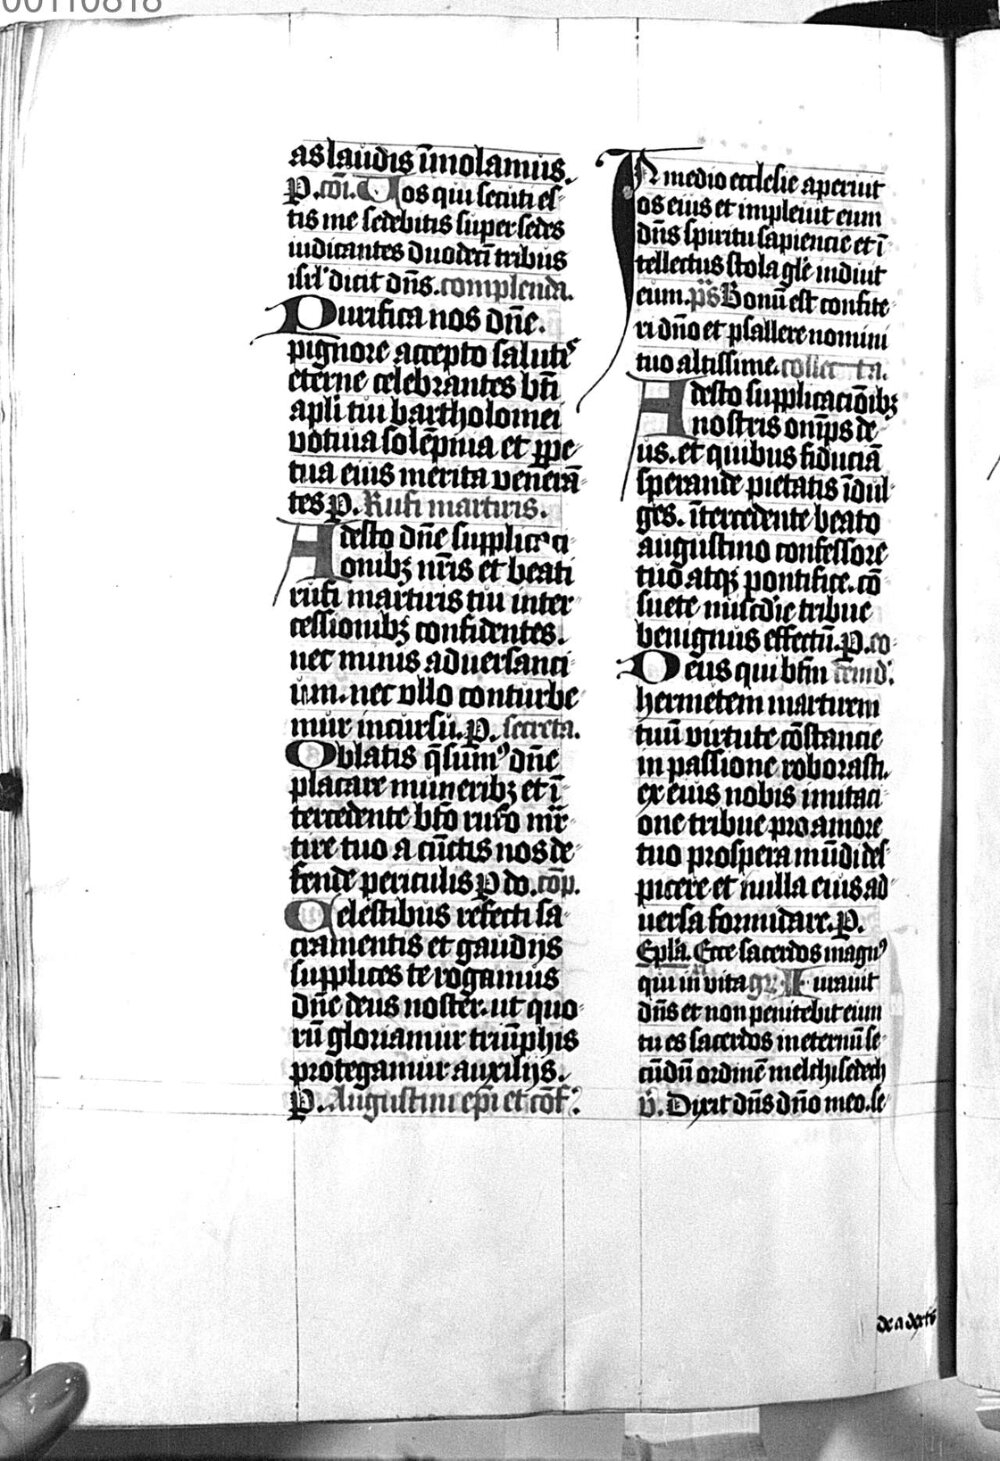 00110818
as laudis ȳmolamus.
P. cōi. Uos qui secuti es
tis me sedebitis super sedes
iudicantes duodeci tribus
isrl' dicit dn̄s. complenda.
Purifica nos dn̄e.
pignore accepto salutis
eterne celebrantes bt̄i
apl̄i tui bartholomei
votiua solēpnia et ꝑpe
tua eius merita venerā
tes P. Rufi martiris.
Adesto dn̄e supplicaci
onibꝫ nr̄is et beati
rufi martiris tui inter
cessionibꝫ confidentes.
nec minis aduersanci
um. nec ullo conturbe
mur incursu. P. secreta.
Oblatis q̄sum⁹ dn̄e
placare muneribꝫ et ī
tercedente bt̄o rufo mr̄
tire tuo a cūctis nos de
fende periculis P do. cōp.
Celestibus refecti sa
cramentis et gaudijs
supplices te rogamus
dn̄e deus noster. ut quo
rū gloriamur triūphis
protegamur auxilijs.
P. Augustini ep̄i et cōf.
In medio ecclesie aperuit
os eius et impleuit eum
dn̄s spiritu sapiencie et ī
tellectus stola gl̄e induit
eum. p̄s Bonū est confite
ri dn̄o et psallere nomini
tuo altissime. collecta.
Adesto supplicaciōibꝫ
nostris om̄ps de
us. et quibus fiduciā
sperande pietatis īdul
ges. ītercedente beato
augustino confessore
tuo atqꝫ pontifice. cō
suete mīscd̄ie tribue
benignus effectū. P. co
Deus qui bt̄m
hermetem martirem
tuū virtute cōstancie
in passione roborasti.
ex eius nobis imitaci
one tribue pro amore
tuo prospera mūdi des
picere et nulla eius ad
uersa formidare. P.
Epl̄a. Ecce sacerdos magn⁹
qui in vita gr̄. Iurauit
dn̄s et non penitebit eum
tu es sacerdos in eternū se
cūdū ordinē melchisedech
v̄. Dixit dn̄s dn̄o meo. se
de a dextris